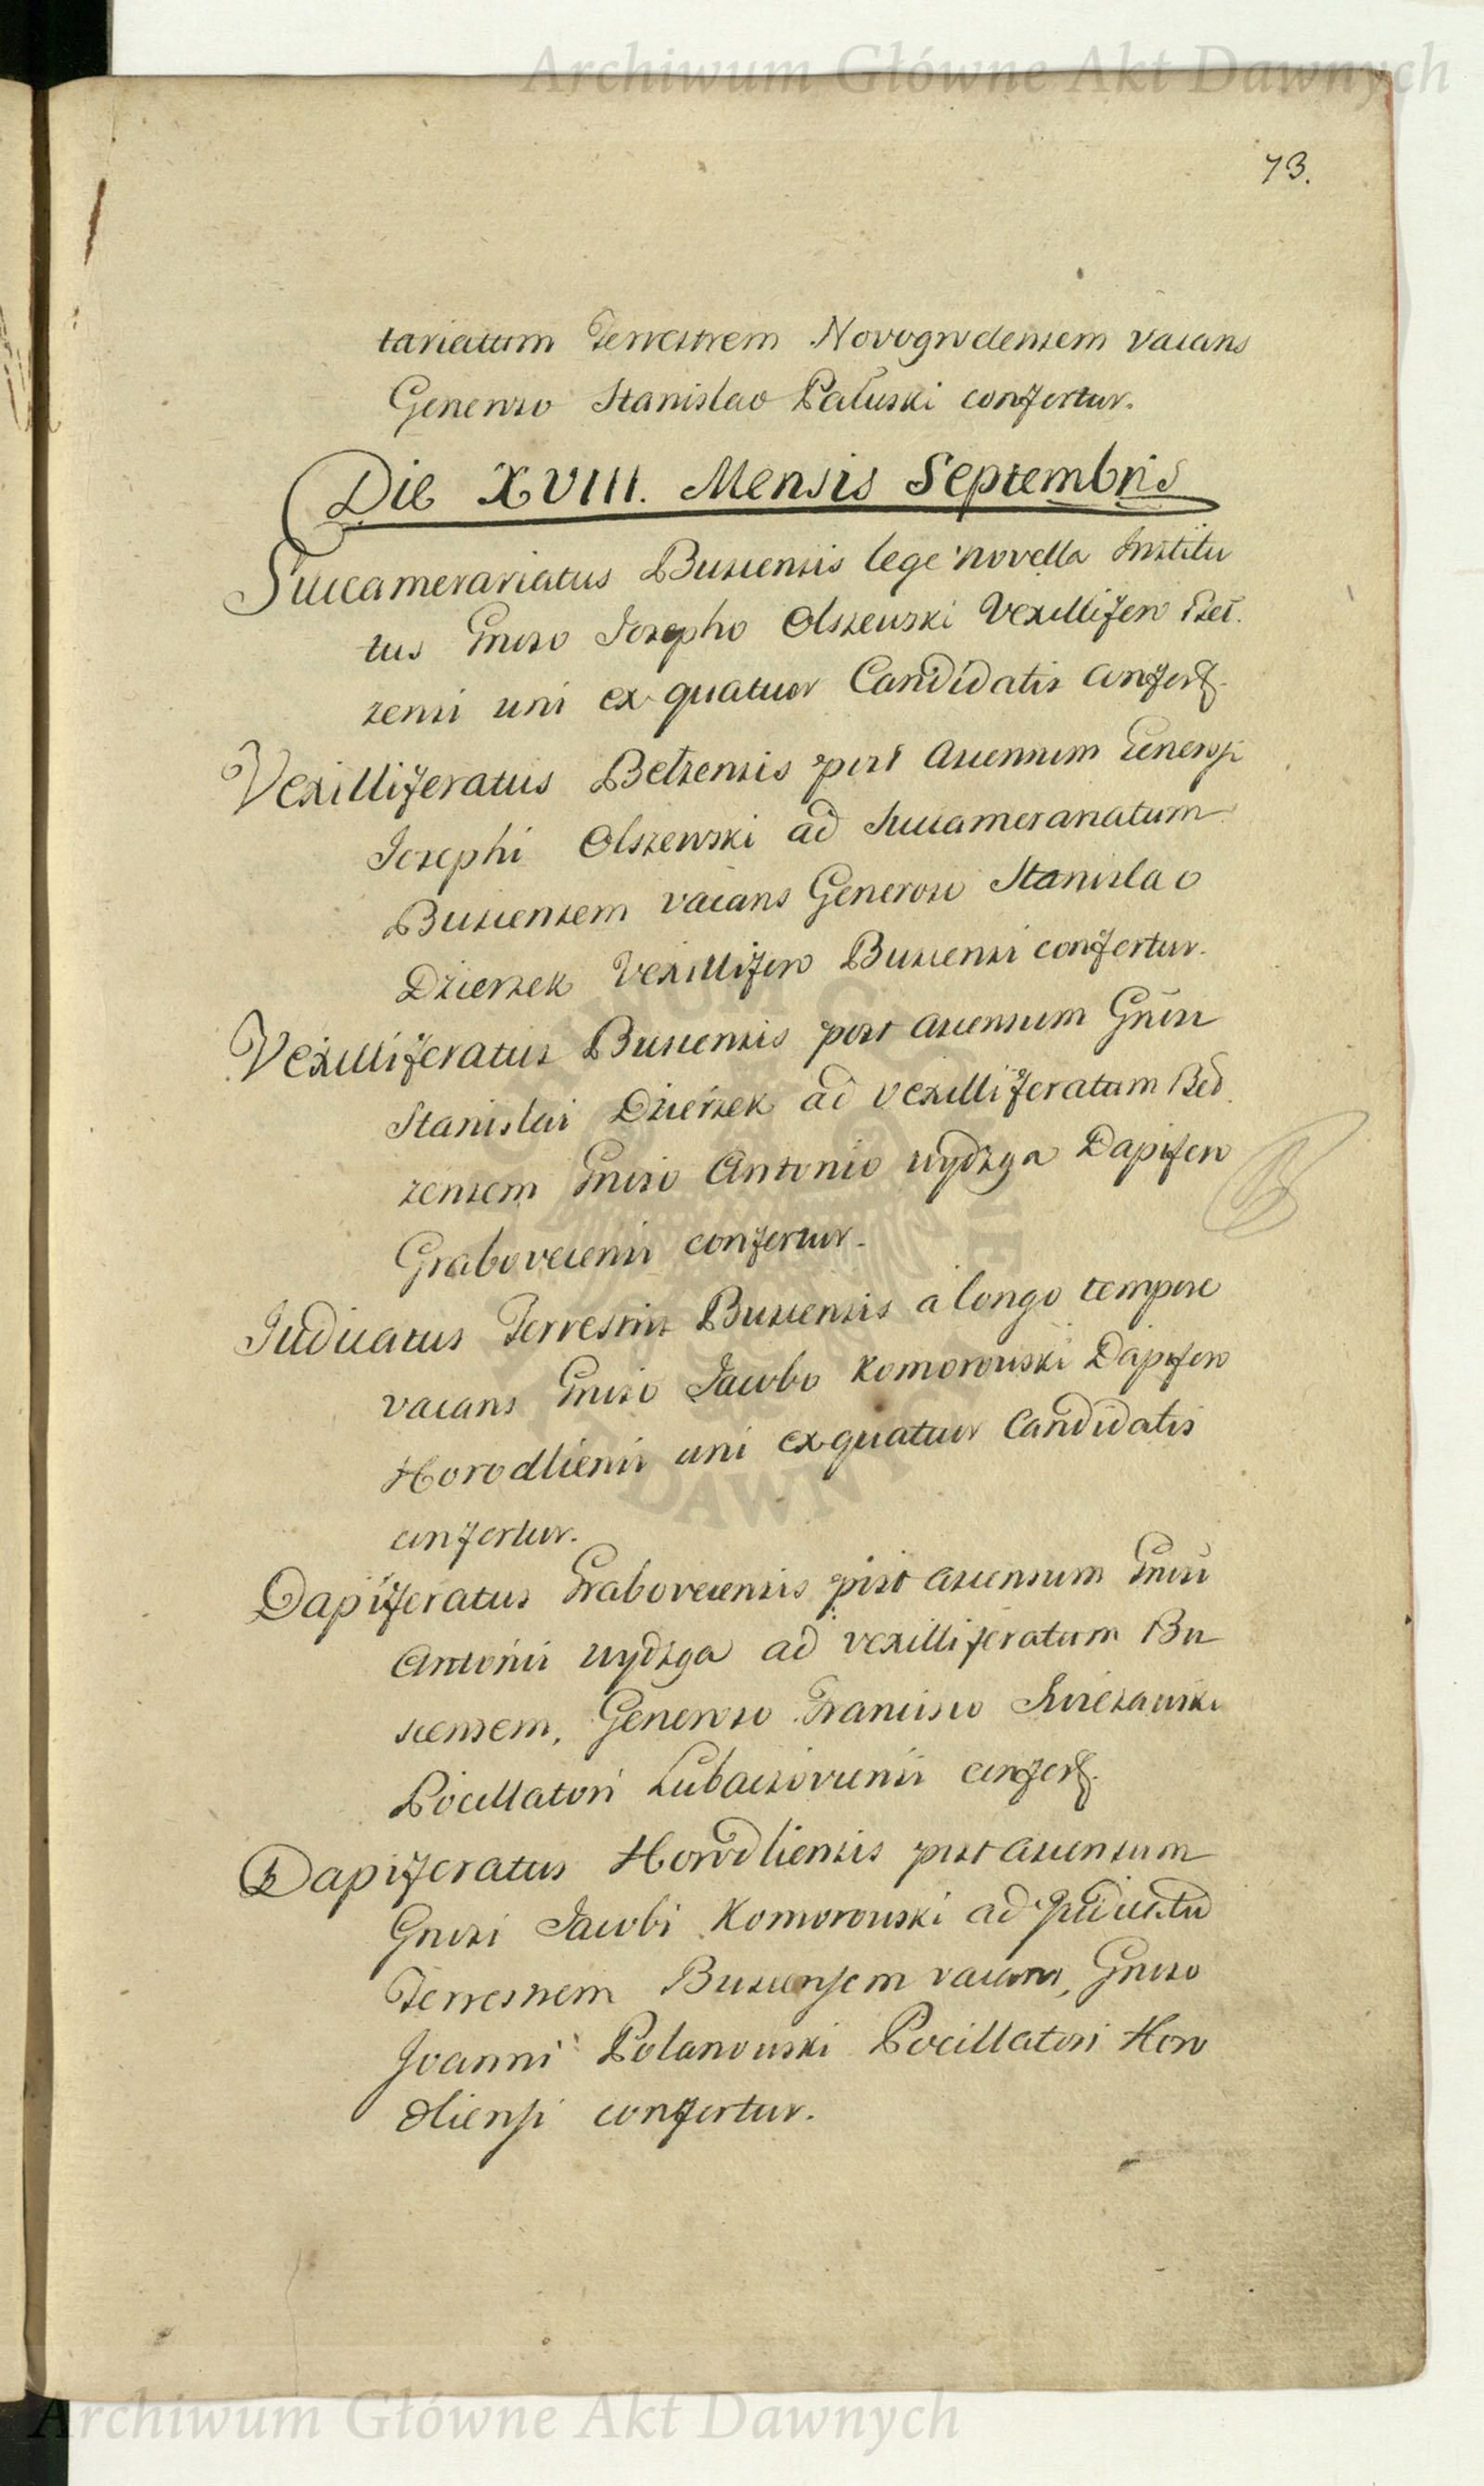 Archiwum Główne Akt Dawnych
73.
tariatum Terrestrem Novogrodensem vacans
Generoso Stanislao Pałuski confertur.
Die XVIII. Mensis Septembris
Succamerariatus Buscensis lege novella Institu
tus Gnoso Josepho Olszewski Vexillifero Bel.
zensi uni ex quatuor Candidatis confert.
Vexilliferatus Belzensis post ascensum Generosi
Josephi Olszewski ad Succamerariatum
Buscensem vacans Generoso Stanislao
Dzierzek Vexillifero Buscensi confertur.
Vexilliferatus Buscensis post ascensum Gnosi
Stanislai Dzierzek ad Vexilliferatum Bel
zensem Gnoso Antonio Wydzga Dapifero
Grabovecensi confertur.
Judicatus Terrestris Buscensis a longo tempore
vacans Gnoso Jacobo Komorowski Dapifero
Horodliensi uni ex quatuor Candidatis
confertur.
Dapiferatus Grabovecensis post ascensum Gnosi
Antonii Wydzga ad vexilliferatum Bu
scensem, Generoso Francisco Swiezawski
Pocillatori Lubaczoviensi confert.
Dapiferatus Horodliensis post ascensum
Gnosi Jacobi Komorowski ad Judicatū
Terrestrem Buscensem vacans, Gnoso
Joanni Polanowski Pocillatori Horo
dliensi confertur.
Archiwum Główne Akt Dawnych